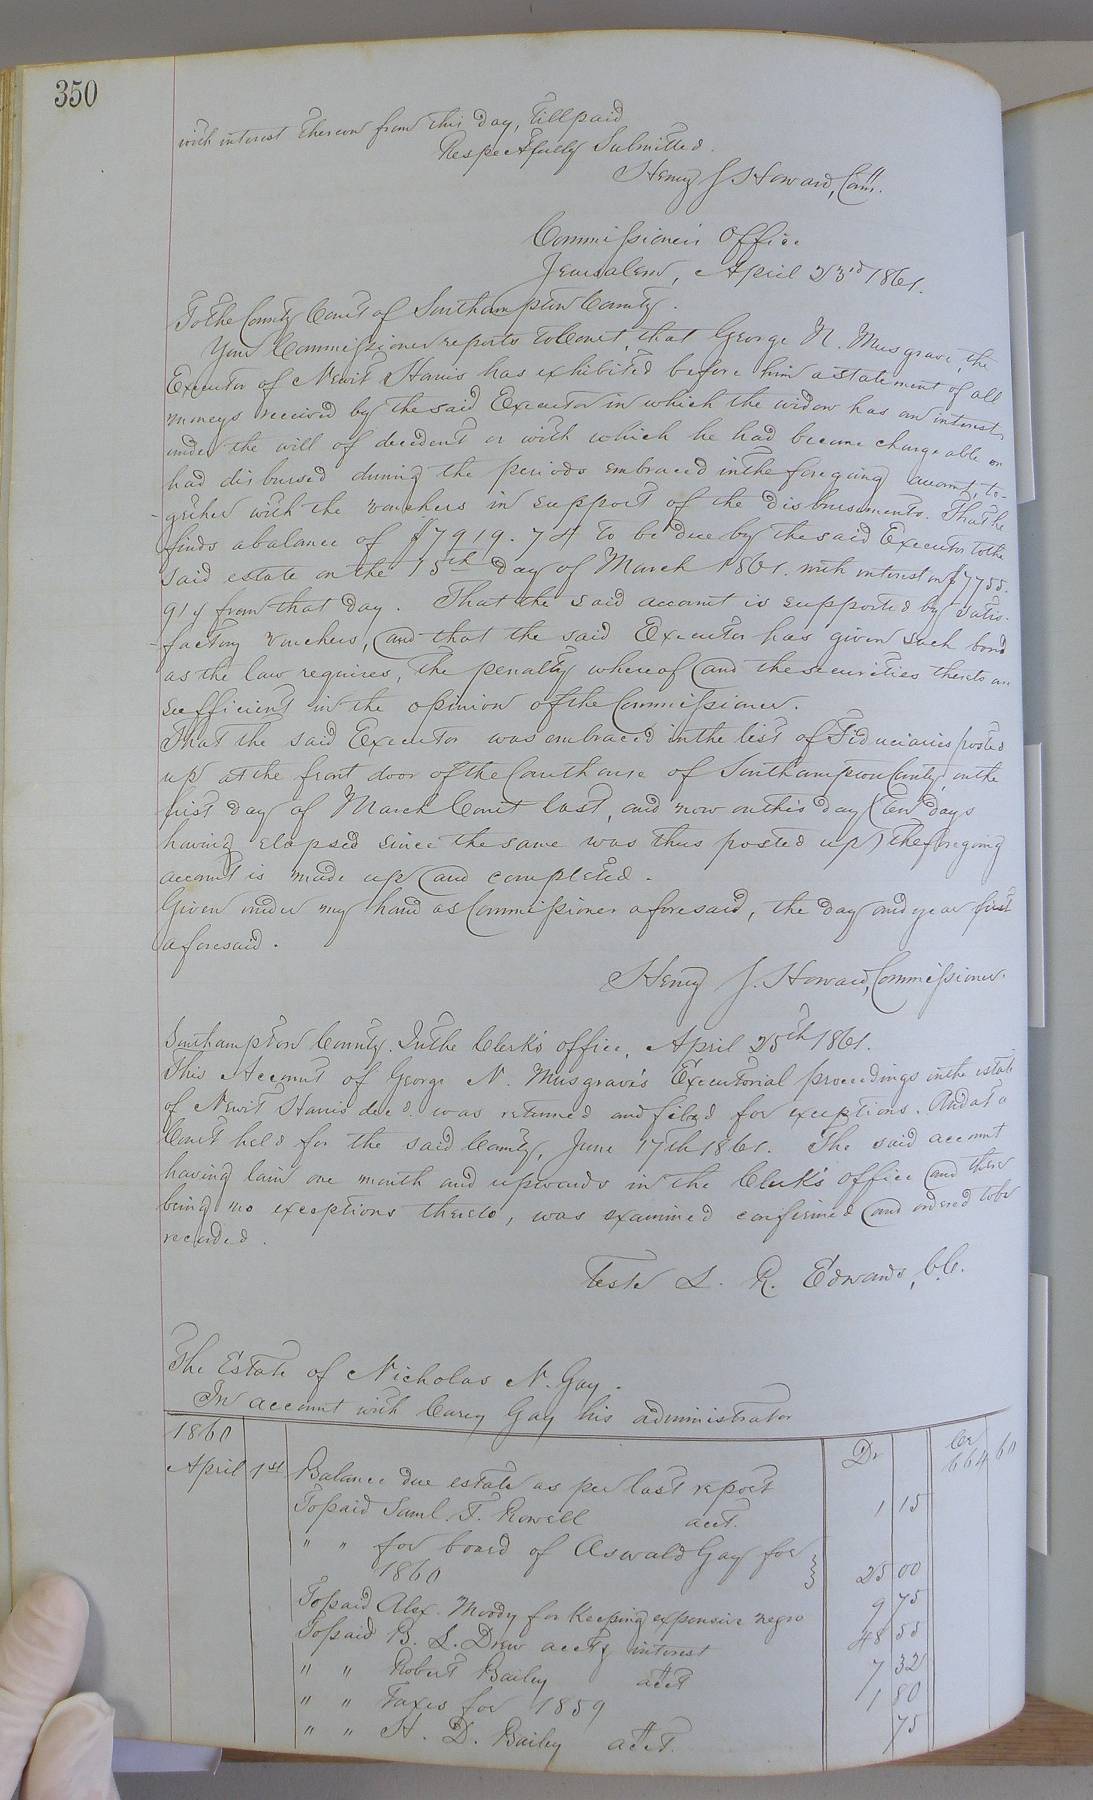 350
with interest thereon from this day, till paid
Respectfully Submitted.
Henry J Howard, Com.
Commissioner's Office
Jerusalem, April 23rd 1861.
To the County Court of Southampton County.
Your Commissioner reports to Court, that George N. Musgrave, the
Executor of Newit Harris has exhibited before him a statement of all
moneys received by the said Executor in which the widow has an interest
under the will of decedent or with which he had become chargeable or
had disbursed during the periods embraced in the foregoing account, to-
gether with the vouchers in support of the disbursements. That he
finds a balance of $7919.74 to be due by the said Executor to the
said estate on the 15th day of March 1861. with interest on $7755.
91¢ from that day. That the said account is supported by satis-
factory vouchers, and that the said Executor has given such bond
as the law requires, the penalty whereof and the securities thereto are
sufficient in the opinion of the Commissioner.
That the said Executor was embraced in the list of Fiduciaries posted
up at the front door of the Courthouse of Southampton County, on the
first day of March Court last, and now on this day (Ten days
having elapsed since the same was thus posted up) the foregoing
account is made up and completed.
Given under my hand as Commissioner aforesaid, the day and year first
aforesaid.
Henry J. Howard, Commissioner.
Southampton County. In the Clerk's office, April 25th 1861.
This Account of George N. Musgrave's Executorial proceedings in the estate
of Newit Harris dec'd. was returned and filed for exceptions. And at a
Court held for the said County, June 17th 1861. The said account
having lain one month and upwards in the Clerk's office and there
being no exceptions thereto, was examined confirmed and ordered to be
recorded.
Teste L. R. Edwards, C.C.
The Estate of Nicholas N. Gay.
In account with Carey Gay his administrator
1860 Dr Cr
April 1st Balance due estate as per last report 664 60
To paid Saml. T. Rowell acct. 1 15
" " for board of Aswald Gay for
1860 25 00
To paid Alex. Moody for Keeping expensive negro 9 75
To paid B. L. Drew acct & interest 48 55
" " Robert Bailey acct 7 32
" " Taxes for 1859 1 80
" " H. D. Bailey acct. 75